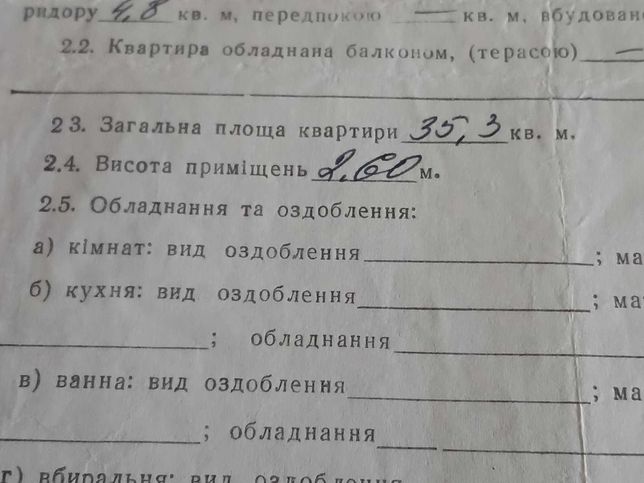 ридору 4,8 кв. м, передпокою — кв. м, вбудован
2.2. Квартира обладнана балконом, (терасою) —
2 3. Загальна площа квартири 35,3 кв. м.
2.4. Висота приміщень 2.60 м.
2.5. Обладнання та оздоблення:
а) кімнат: вид оздоблення ; ма
б) кухня: вид оздоблення ; ма
; обладнання
в) ванна: вид оздоблення ; ма
; обладнання
г) вбиральня: вид оздоблення